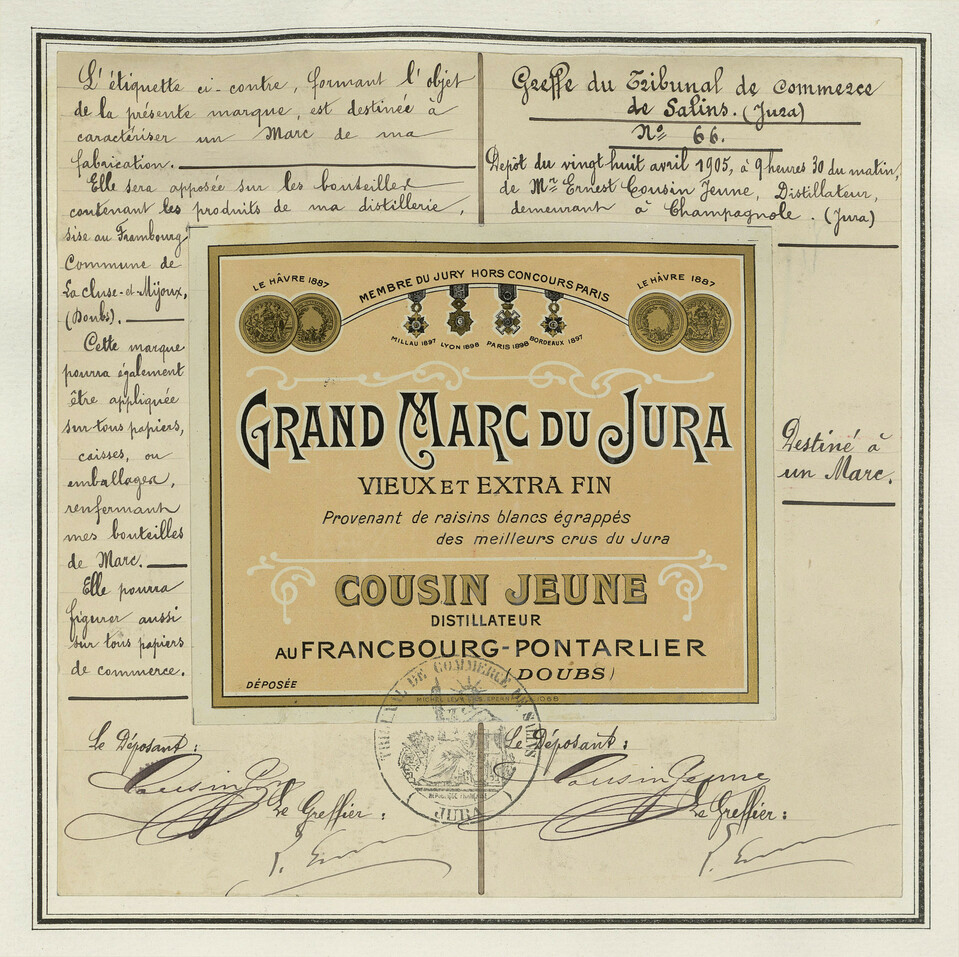 L'étiquette ci-contre, formant l'objet
de la présente marque, est destinée à
caractériser un Marc de ma
fabrication.
Elle sera apposée sur les bouteilles
contenant les produits de ma distillerie,
sise au Frambourg
Commune de
La Cluse-et-Mijoux,
(Doubs).
Cette marque
pourra également
être appliquée
sur tous papiers,
caisses, ou
emballages,
renfermant
mes bouteilles
de Marc.
Elle pourra
figurer aussi
sur tous papiers
de commerce.
Greffe du Tribunal de Commerce
de Salins. (Jura)
N° 66.
Dépôt du vingt huit avril 1905, à 9 heures 30 du matin,
de Mr Ernest Cousin Jeune, Distillateur,
demeurant à Champagnole. (Jura)
Destiné à
un Marc.
LE HÂVRE 1887
MEMBRE DU JURY HORS CONCOURS PARIS
LE HÂVRE 1887
MILLAU 1897 LYON 1898 PARIS 1898 BORDEAUX 1897
GRAND MARC DU JURA
VIEUX ET EXTRA FIN
Provenant de raisins blancs égrappés
des meilleurs crus du Jura
COUSIN JEUNE
DISTILLATEUR
AU FRANCBOURG-PONTARLIER
(DOUBS)
DÉPOSÉE
TRIBUNAL DE COMMERCE DE SALINS
RÉPUBLIQUE FRANÇAISE
(JURA)
Le Déposant:
Cousin Jeune
Le Greffier:
Le Déposant:
Cousin Jeune
Le Greffier: